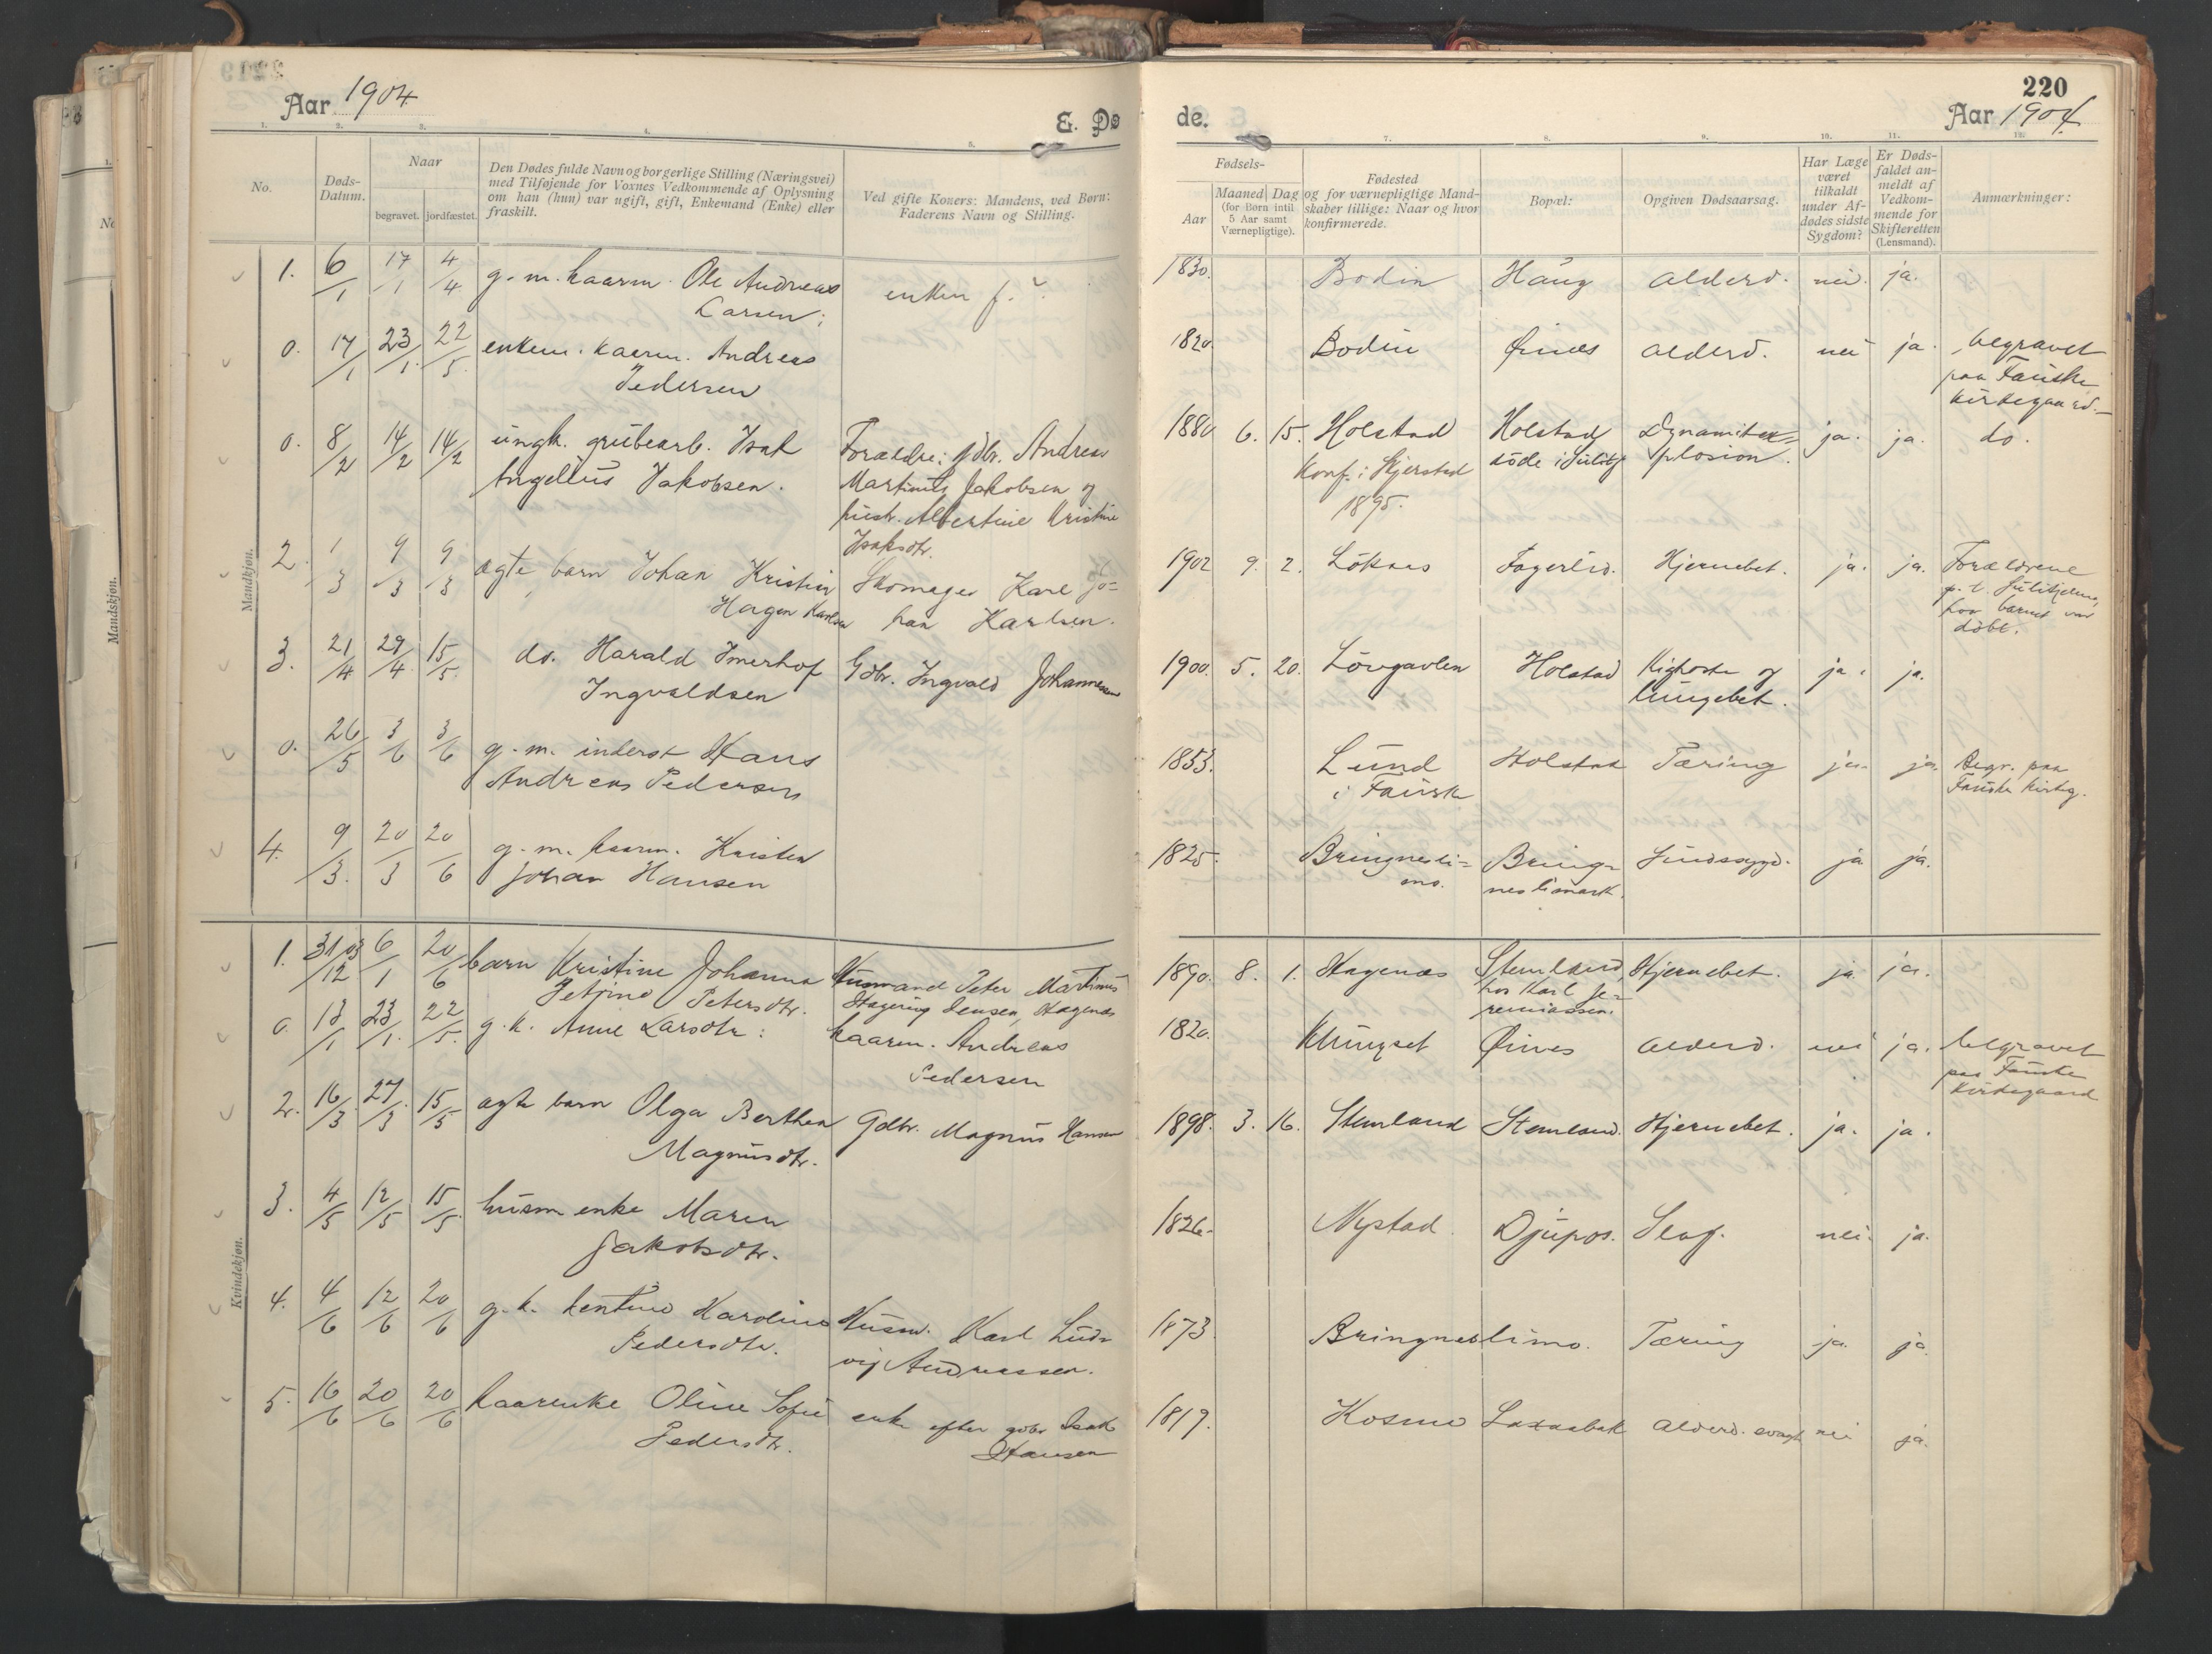 Aar 1904
E. Dø
1. 2. 3. 4. 5.
No.
Døds-
Datum.
Naar
begravet. jordfæstet.
Den Dødes fulde Navn og borgerlige Stilling (Næringsvei)
med Tilføjende for Voxnes Vedkommende af Oplysning
om han (hun) var ugift, gift, Enkemand (Enke) eller
fraskilt.
Ved gifte Koners: Mandens, ved Børn:
Faderens Navn og Stilling.
Mandkjøn.
1. 6/1 17/1 4/4 g. m. kaarm. Ole Andreas enken f.
Larsen;
0. 17/1 23/1 22/5 enkem. kaarm. Andreas
Pedersen
0. 8/2 14/2 14/2 ungk. grubearb. Isak Forældre: gdbr. Andreas
Angelius Jakobsen. Martinus Jakobsen og
hustr. Albertine Kristine
Isaksdtr.
2. 1/3 9/3 9/3 ægte barn Johan Kristian Skomager Karl Jo=
Hagen Karlsen han Karlsen.
3. 21/4 29/4 15/5 do. Harald Imerhof Gdbr. Ingvald Johannessen
Ingvaldsen
0. 26/5 3/6 3/6 g. m. inderst Hans
Andreas Pedersen
4. 9/3 20/3 20/6 g. m. kaarm. Kristen
Johan Hansen
Kvindekjøn.
1. 31/12 03 6/1 20/6 barn Kristine Johanna Husmand Peter Martinus
Petrine Petersdtr. Jensen, Hagenæs
0. 13/1 23/1 22/5 g. k. Anne Larsdtr: kaarm. Andreas
Pedersen
2. 16/3 27/3 15/5 ægte barn Olga Berthea Gdbr. Magnus Hansen
Magnusdtr.
3. 4/5 12/5 15/5 husm enke Maren
Jakobsdtr.
4. 4/6 12/6 20/6 g. k. Karoline Husm. Karl Lud=
Pedersdtr. vig Andreassen.
5. 16/6 20/6 20/6 kaarenke Oline Sofie enke efter gdbr Isak
Pedersdtr. Hansen
220
de. Aar 1904
7. 8. 9. 10. 11. 12.
Fødsels-
Aar
Maaned Dag
(for Børn intil
5 Aar samt
Værnepligtige).
Fødested
og for værnepligtige Mand-
skaber tillige: Naar og hvor
konfirmerede.
Bopæl:
Opgiven Dødsaarsag.
Har Læge
været
tilkaldt
under Af-
dødes sidste
Sygdom?
Er Døds-
faldet an-
meldt af
Vedkom-
mende for
Skifteretten
(Lensmand).
Anmærkninger:
1830. Bodin Haug Alderd. nei. ja.
1820 Bodin Øines Alderd. nei ja. begravet
paa Fauske
kirkegaard.
1880 6. 15. Holstad Holstad Dynamitex= ja. ja. do.
Konf. i Skjerstad døde i Sulitj plosion.
1895.
1902 9. 2. Löknes Fagerlid. Hjernebet. ja. ja. Forældrene
p. t. Sulitjelma,
hvor barnet var
døbt.
1900. 5. 20. Lövgavlen Holstad Kighoste og ja. ja.
lungebet.
1853. Lund Holstad Tæring ja. ja. Begr. paa
i Fauske Fauske kirkg.
1825. Bringnesli= Bring= Sindssygd. ja ja.
mo. neslimark.
1890. 8. 1. Hagenæs Stemland, Hjernebet. ja. ja.
hos Karl Je=
remiassen.
1820. Klungset Øines Alderd. nei ja. begravet
paa Fauske
kirkegaard
1898. 3. 16. Stemland Stemland. Hjernebet. ja. ja.
1826. Nystad Djupos. Slag. nei. ja.
1873 Bringneslimo. Tæring ja. ja.
1819. Kosmo Laxaabak Alderd. svagh nei ja.
Mandskjøn.